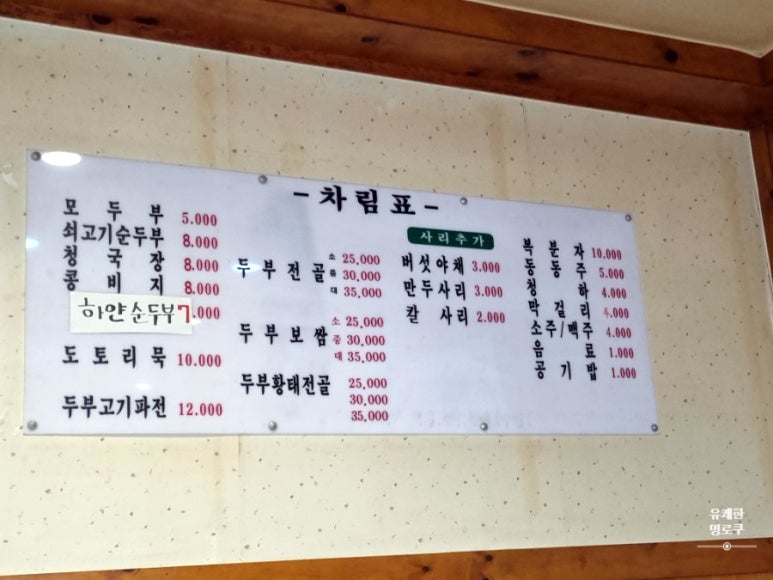 - 차림표 -
모두부 5.000
쇠고기순두부 8.000
청국장 8.000
콩비지 8.000
하얀순두부 7.000
도토리묵 10.000
두부고기파전 12.000
두부전골 소 25,000
중 30,000
대 35,000
두부보쌈 소 25,000
중 30,000
대 35,000
두부황태전골 25,000
30,000
35,000
사리추가
버섯야채 3.000
만두사리 3.000
칼사리 2.000
복분자 10.000
동동주 5.000
청하 4.000
막걸리 4.000
소주/맥주 4.000
음료 1.000
공기밥 1.000
유쾌한
명로쿠